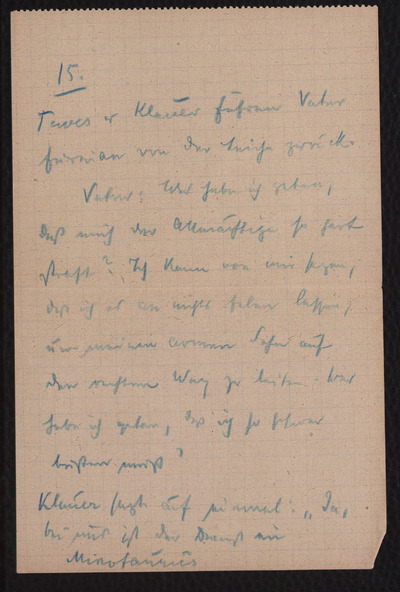 15.
Taves u Klauer führen Vater
Furrian von der Leiche zurück.
Vater: Was habe ich getan,
daß mich der Allmächtige so hart
straft? Ich kann von mir sagen,
daß ich es an nichts fehlen lassen,
um meinen armen Sohn auf
den rechten Weg zu leiten. Was
habe ich getan, daß ich so schwer
büßen muß?
Klauer sagte auf einmal: „Ja,
bei uns ist der Dienst ein
Minotaurus